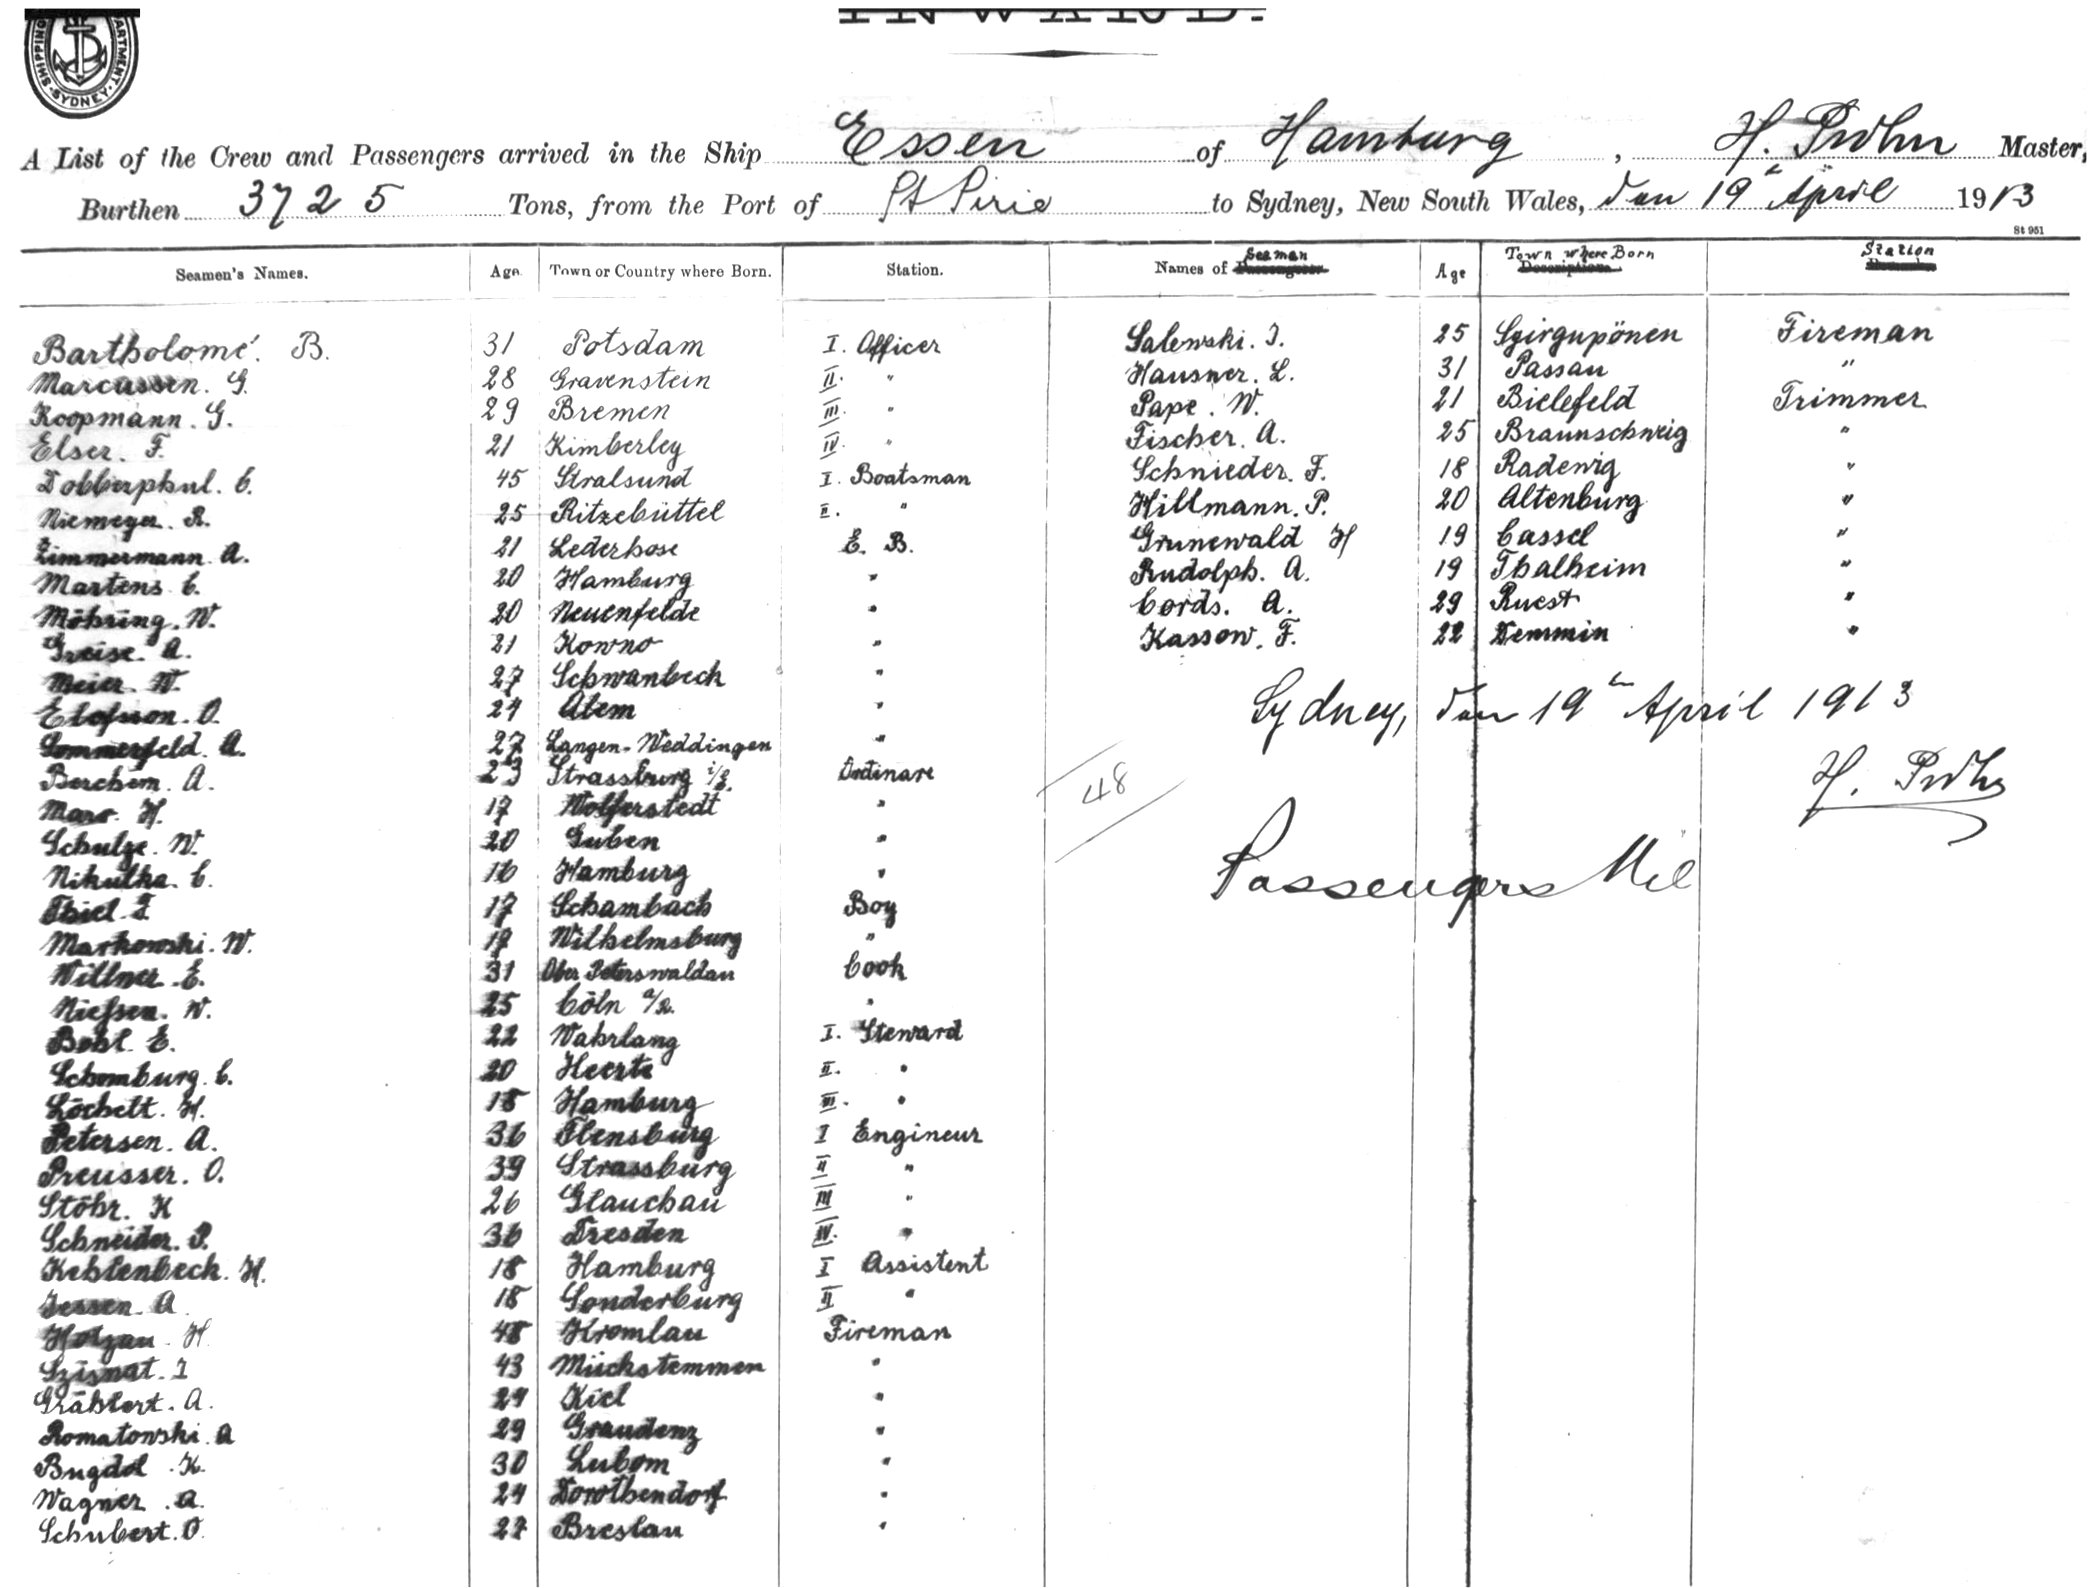 SHIPPING DEPARTMENT SYDNEY
INWARD.
A List of the Crew and Passengers arrived in the Ship Essen of Hamburg, H. Master,
Burthen 3725 Tons, from the Port of Pt Pirie to Sydney, New South Wales, den 19ten April 1913
St 951
Seamen's Names. Age. Town or Country where Born. Station. Names of Seaman Age Town where Born Station
Bartholomé. B. 31 Potsdam I. Officer
Marcussen. G. 28 Gravenstein II. "
Koopmann. G. 29 Bremen III. "
Elser. F. 21 Kimberley IV. "
Dobberphul. C. 45 Stralsund I. Boatsman
Niemeyer. R. 25 Ritzebüttel II. "
Zimmermann. A. 21 Lederhose E. B.
Martens. C. 20 Hamburg "
Möhring. W. 20 Neuenfelde "
Greise. A. 21 Kowno "
Meier. W. 27 Schwanbeck "
Elofsson. O. 24 "
Sommerfeld. A. 27 Langen-Weddingen "
Berchem. A. 23 Strassburg i/E. Ordinare
H. 17 Wolferstedt "
Schulze. W. 20 Guben "
Nikulka. C. 16 Hamburg "
Thiel. 17 Schambach Boy
Markowski. W. 17 Wilhelmsburg "
Willner. E. 31 Ober Peterswaldau Cook
Niessen. W. 25 Cöln a/R. "
Bohl. E. 22 Wahrlang I. Steward
Schomburg. C. 20 Heerte II. "
Löchelt. H. 18 Hamburg III. "
Petersen. A. 36 Flensburg I Engineur
Preusser. O. 39 Strassburg II "
Stöhr. K 26 Glauchau III "
Schneider. P. 36 Dresden IV. "
Kehtenbeck. H. 18 Hamburg I Assistent
Jessen. A 18 Sonderburg II "
H. 48 Kromlau Fireman
Szisnat. I 43 Mückstemmen "
Grählert. A. 29 Kiel "
Romatowski. A 29 Graudenz "
Bugdol. K. 30 Lubom "
Wagner. A. 24 "
Schubert. O. 27 Breslau "
Salewski. I. 25 Szirgupönen Fireman
Hausner. L. 31 Passau "
Pape. W. 21 Bielefeld Trimmer
Fischer. A. 25 Braunschweig "
Schnieder. F. 18 Radewig "
Hillmann. P. 20 Altenburg "
Grunewald H 19 Cassel "
Rudolph. A. 19 Thalheim "
Cords. A. 29 Ruest "
Kassow. F. 22 Demmin "
Sydney, den 19ten April 1913
H.
48
Passengers Nil